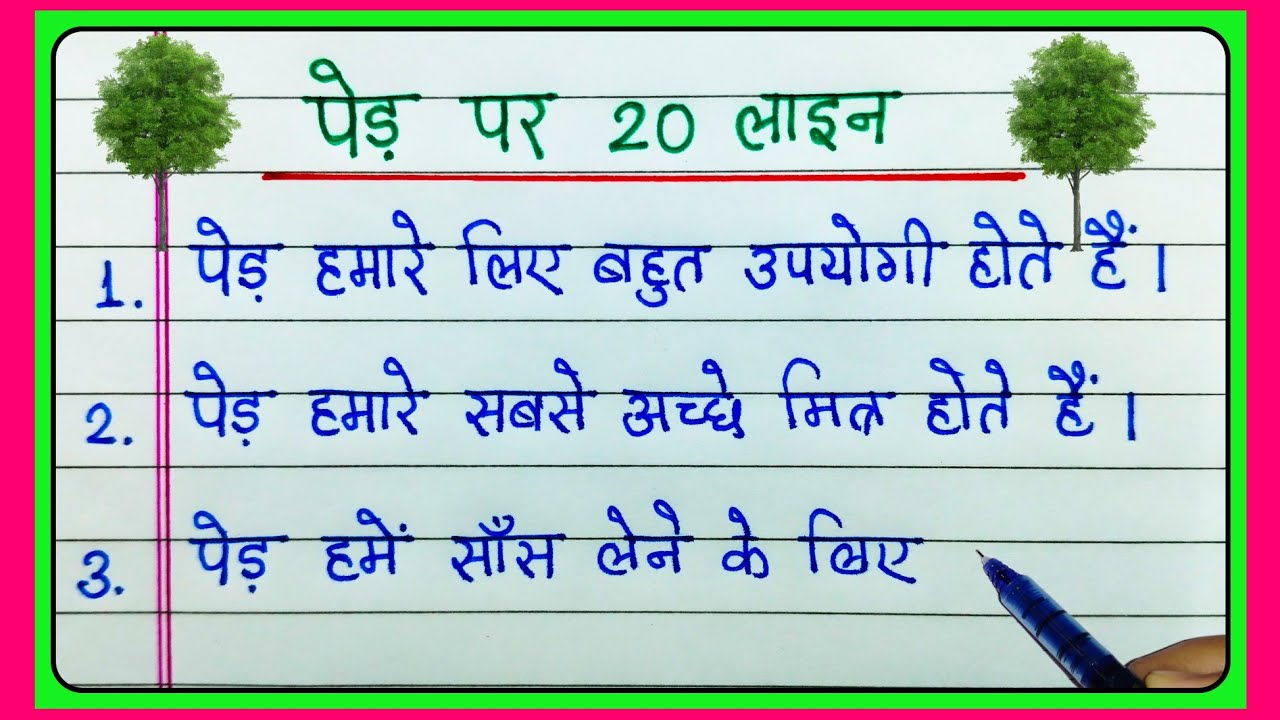 पेड़ पर 20 लाइन
1. पेड़ हमारे लिए बहुत उपयोगी होते हैं।
2. पेड़ हमारे सबसे अच्छे मित्र होते हैं।
3. पेड़ हमें साँस लेने के लिए